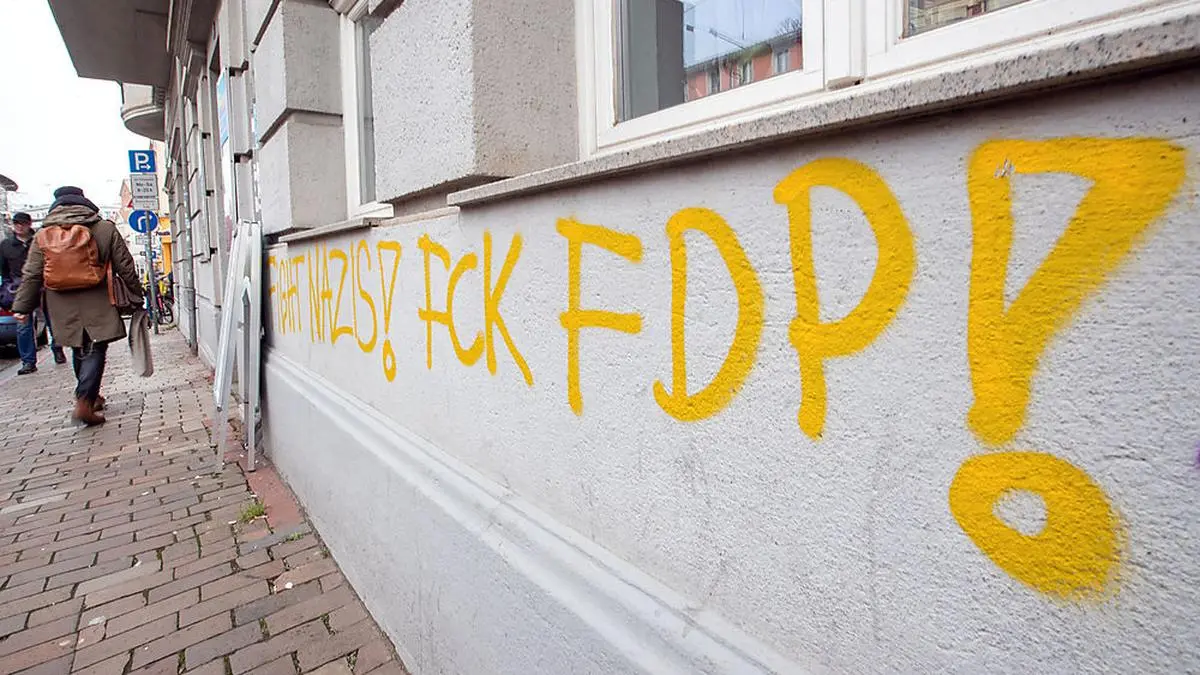 P
FIGHT NAZIS! FCK FDP!